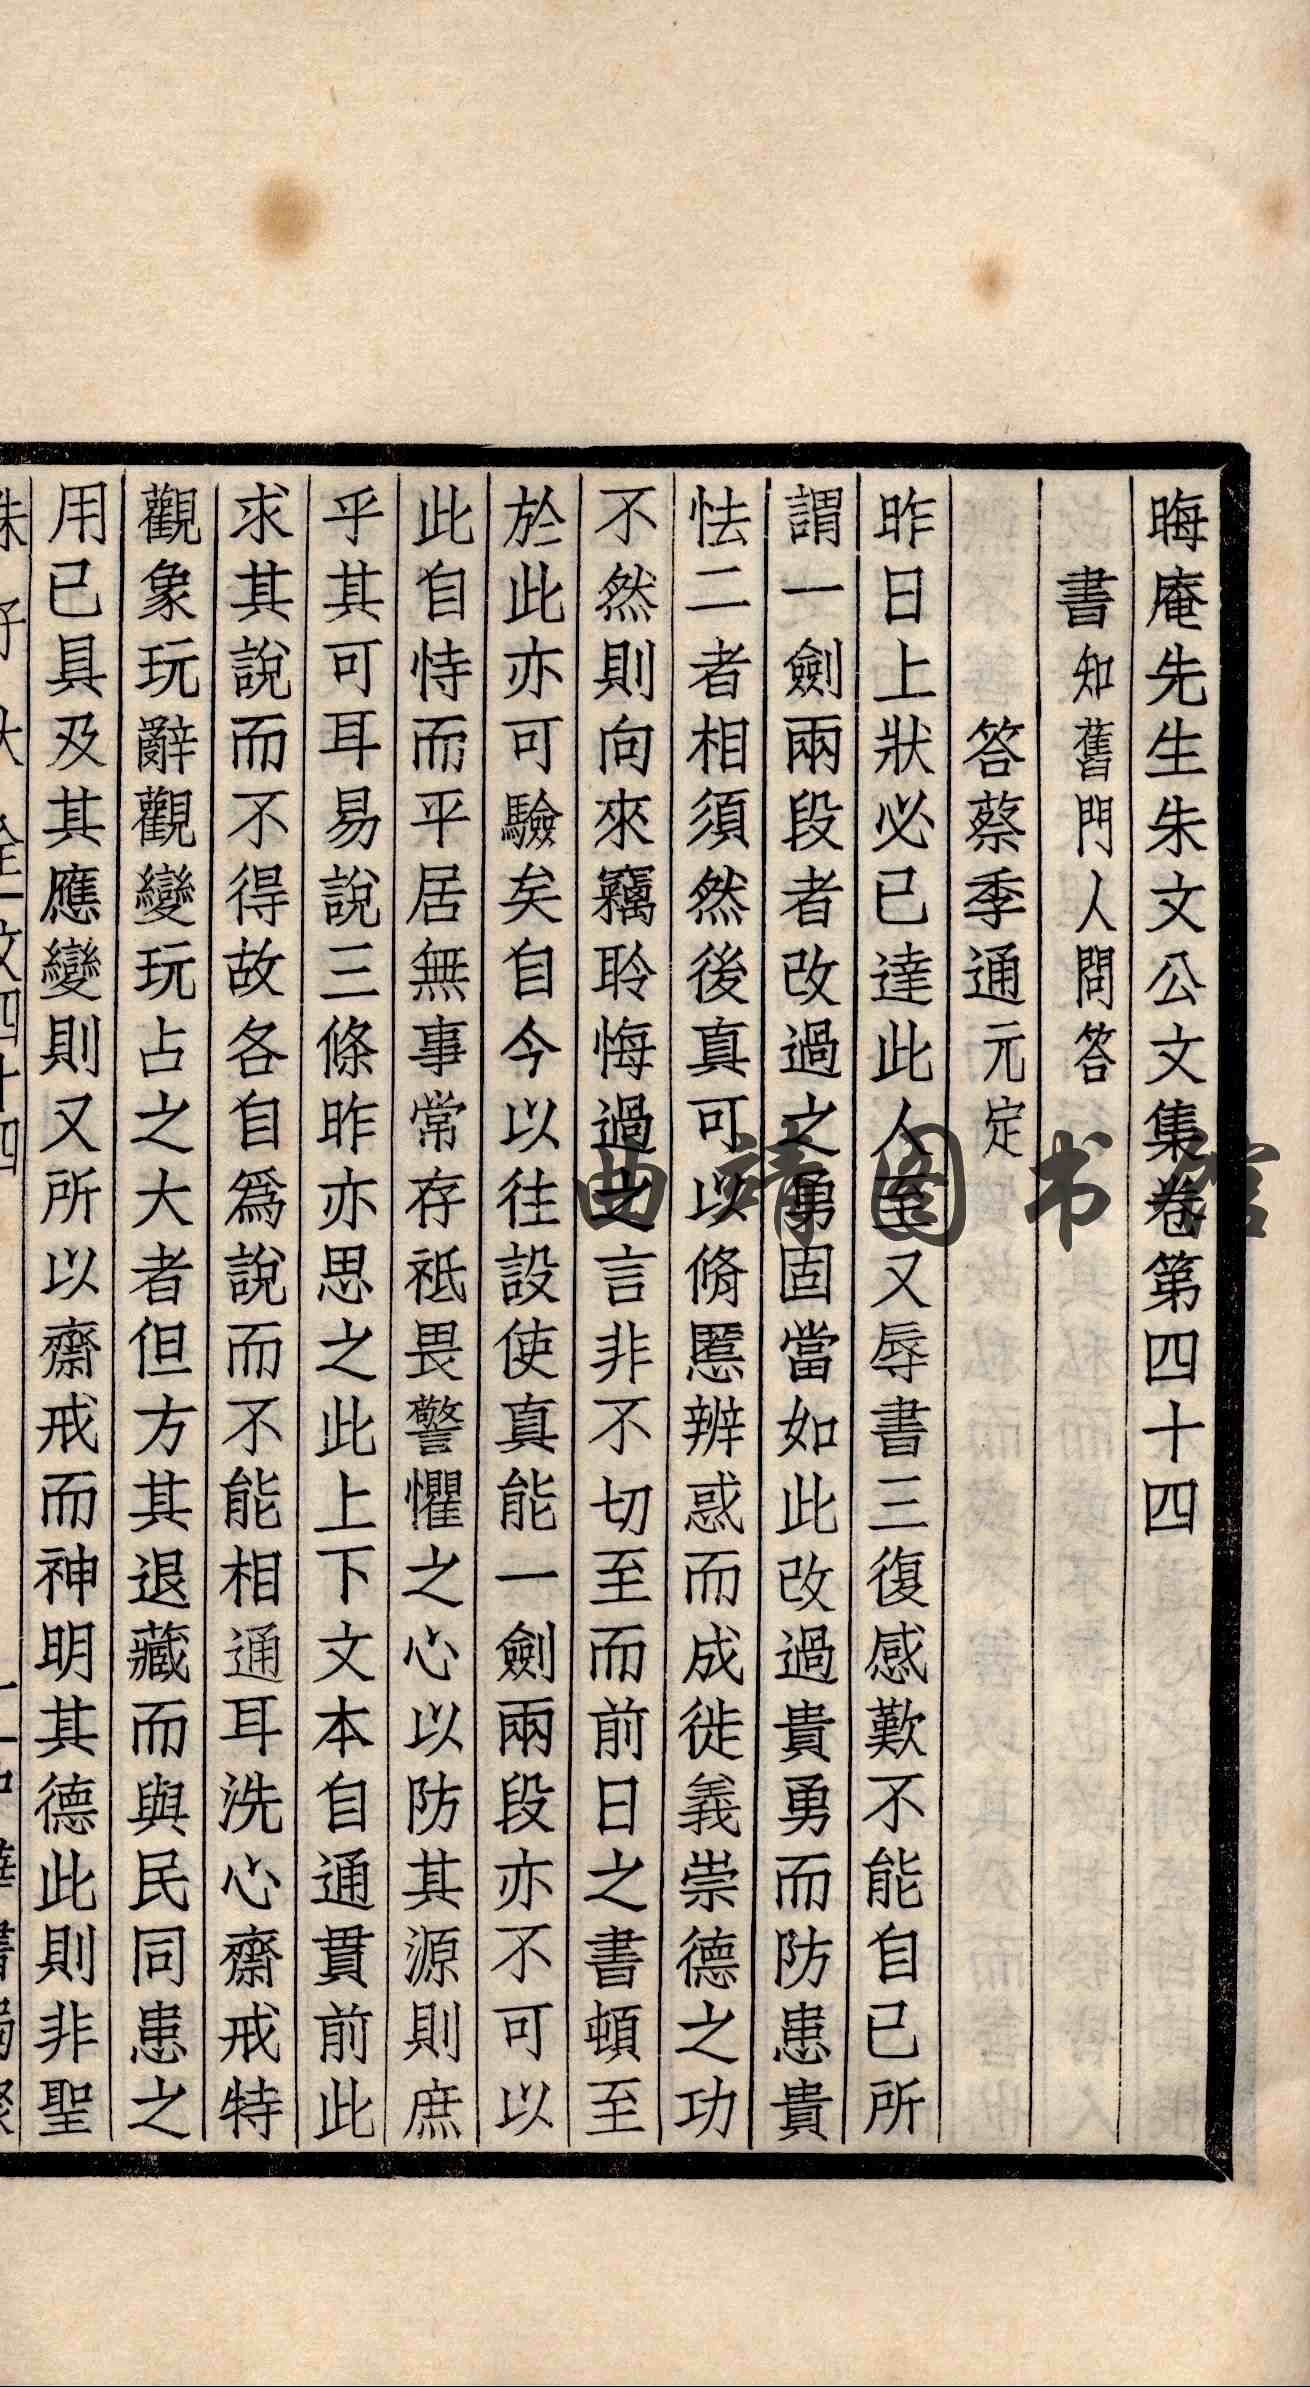 晦庵先生朱文公文集卷第四十四
書知舊門人問答
答蔡季通元定
昨日上狀必已達此人至又辱書三復感歎不能自已所
謂一劍兩段者改過之勇固當如此改過貴勇而防患貴
怯二者相須然後真可以脩慝辨惑而成徙義崇德之功
不然則向來竊聆悔過之言非不切至而前日之書頓至
於此亦可驗矣自今以往設使真能一劍兩段亦不可以
此自恃而平居無事常存祗畏警懼之心以防其源則庶
乎其可耳易說三條昨亦思之此上下文本自通貫前此
求其說而不得故各自為說而不能相通耳洗心齋戒特
觀象玩辭觀變玩占之大者但方其退藏而與民同患之
用已具及其應變則又所以齋戒而神明其德此則非聖
曲靖图书馆